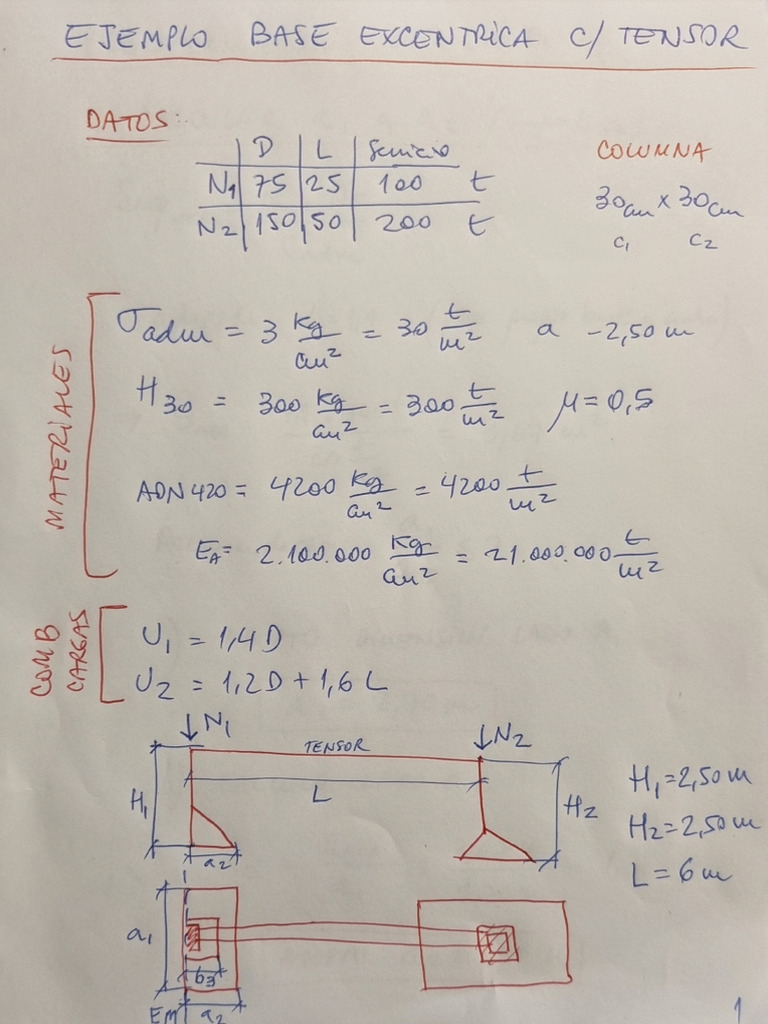 EJEMPLO BASE EXCENTRICA C/ TENSOR
DATOS:
D L Servicio
N1 75 25 100 t
N2 150 50 200 t
COLUMNA
30cm x 30cm
c1 c2
MATERIALES
σadm = 3 kg/cm² = 30 t/m² a -2,50 m
H30 = 300 kg/cm² = 300 t/m² μ = 0,5
ADN 420 = 4200 kg/cm² = 4200 t/m²
EA = 2.100.000 kg/cm² = 21.000.000 t/m²
COMB CARGAS
U1 = 1,4 D
U2 = 1,2 D + 1,6 L
N1 TENSOR N2
H1 L H2
a2
H1 = 2,50 m
H2 = 2,50 m
L = 6 m
a1
b3
EM a2
1